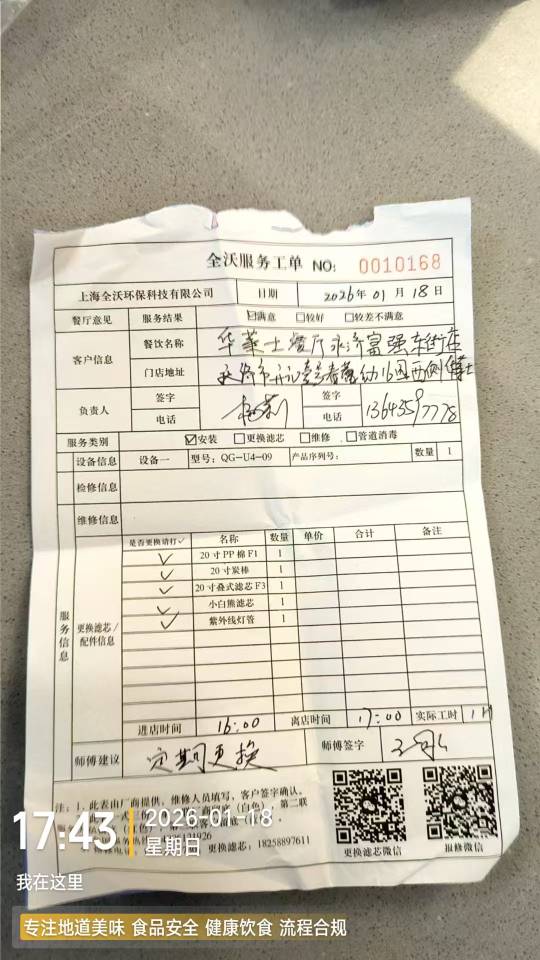 全沃服务工单 NO: 0010168
上海全沃环保科技有限公司 日期 2026年 01月 18日
餐厅意见 服务结果 ☑满意 □较好 □较差不满意
客户信息 餐饮名称 华莱士餐厅永济富强东街店
门店地址
负责人 签字 签字
电话 电话 13643597778
服务类别 ☑安装 □更换滤芯 □维修 □管道消毒
设备信息 设备一 型号: QG-U4-09 产品序列号: 数量 1
检修信息
维修信息
服务信息
更换滤芯/配件信息
是否更换请打✓ 名称 数量 单价 合计 备注
✓ 20寸PP棉F1 1
✓ 20寸炭棒 1
✓ 20寸叠式滤芯F3 1
✓ 小白熊滤芯 1
✓ 紫外线灯管 1
进店时间 16:00 离店时间 17:00 实际工时 1H
师傅建议 定期更换 师傅签字
注: 1、此表由厂商提供, 维修人员填写, 客户签字确认。
(白色) 第二联
更换滤芯: 18258897611
更换滤芯微信 报修微信
17:43 2026-01-18
星期日
我在这里
专注地道美味 食品安全 健康饮食 流程合规